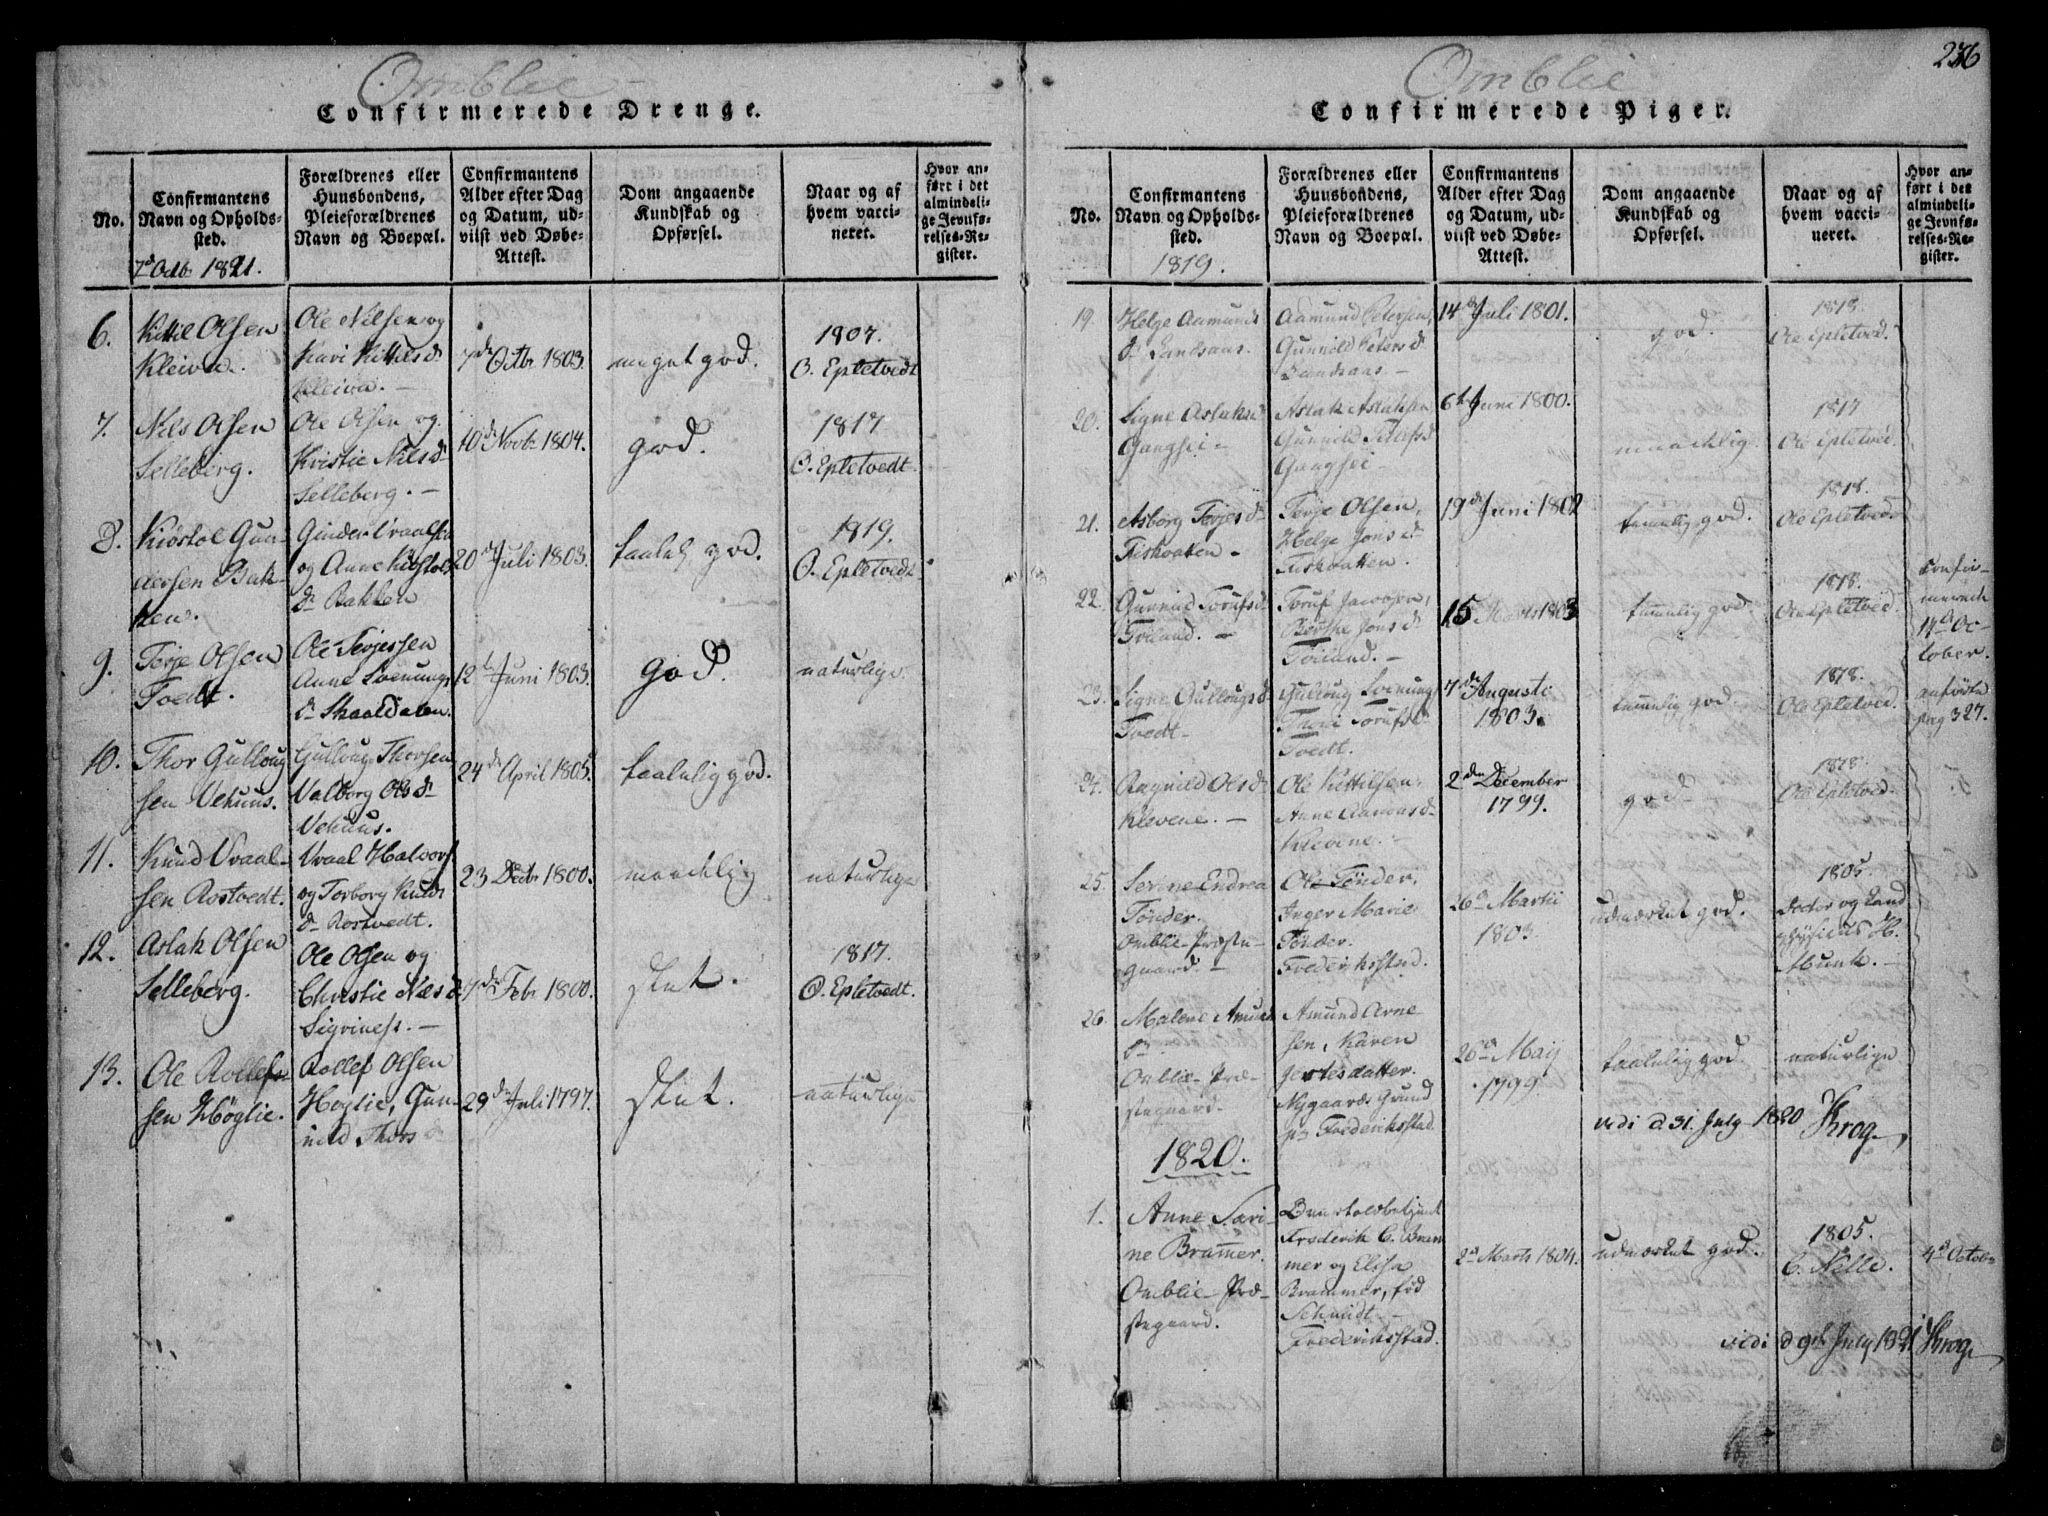 Omblie
Confirmerede Drenge.
No.
Confirmantens
Navn og Opholds-
sted.
7d Octb 1821.
Forældrenes eller
Huusbondens,
Pleieforældrenes
Navn og Boepæl.
Confirmantens
Alder efter Dag
og Datum, ud-
viist ved Døbe-
Attest.
Dom angaaende
Kundskab og
Opførsel.
Naar og af
hvem vacci-
neret.
Hvor an-
ført i det
almindeli-
ge Jevnfø-
relses-Re-
gister.
6.
Kittil Olsen
Kleiva.
Ole Nilsen og
Kari Kittilsd
Kleiva. -
7de Octbr 1803.
meget god.
1807.
O. Epletvedt
7.
Nils Olsen
Selleberg.
Ole Olsen og
Kristie Nilsd
Selleberg. -
10d Novbr 1804.
god.
1817
O. Epletvedt.
8.
Kiøstol Gun-
dersen Bak-
ken.
Gunder Uraalsen
og Anne Kiøstols
dr Bakken
20d Juli 1803.
taalelig god.
1819.
O. Epletvedt
9.
Terje Olsen
Tvedt.
Ole Terjessen
Anne Svenungs
dr Skaaldalen.
12te Juni 1803.
god.
naturlige.
10.
Thor Gulloug
sen Vehuus.
Gulloug Thorsen
Valborg Olsdr
Vehuus.
24de April 1805.
taalelig god.
11.
Knud Vraal-
sen Rostvedt.
Vraal Halvors
og Torborg Knuds
dr Rostvedt.
23 Decbr 1800.
maadelig
naturlige
12.
Aslak Olsen
Selleberg.
Ole Olsen og
Christie Nilsd
Sigvines. -
7de Febr 1800.
slet.
1817.
O. Epletvedt.
13.
Ole Rollef-
sen Høglie.
Rollef Olsen
Høglie, Gun-
nild Thors
29de Juli 1797.
slet.
naturlige
236
Omblie
Confirmerede Piger.
No.
Confirmantens
Navn og Opholds-
sted.
1819.
Forældrenes eller
Huusbondens,
Pleieforældrenes
Navn og Boepæl.
Confirmantens
Alder efter Dag
og Datum, ud-
viist ved Døbe-
Attest.
Dom angaaende
Kundskab og
Opførsel.
Naar og af
hvem vacci-
neret.
Hvor an-
ført i det
almindeli-
ge Jevnfø-
relses-Re-
gister.
19.
Helge Aamunds
dr Landsaas.
Aamund Petersen,
Gunnild Petersd
Landsaas -
14de Juli 1801.
god.
1818.
Ole Epletved.
20.
Signe Aslaksd
Gangsei -
Aslak Aslaksen
Gunnild
Gangsei -
6te Juni 1800.
maadelig
1817
Ole Epletved.
21.
Asborg Terjesd
Fiskvatten -
Terje Olsen,
Helge Jonsd
Fiskvatten.
19de Juni 1802
temmelig god.
1818.
Ole Epletved.
22.
Gunnild Torufsd
Føiland. -
Toruf Jacobsen,
Jonsd
Føiland. -
15 Marts 1803
temmelig god.
1818.
Ole Epletved.
Confir-
merede
14d Oc-
tober.
anførte
pag 327.
23.
Signe Gullougsd
Tvedt -
Gulloug Svenungs
Thoni Torufsd
Tvedt.
7de Augusti
1803.
temmelig god.
1818.
Ole Epletved.
24.
Ragnild Olsd
Klevene. -
Ole Kittilsen,
Anne Aanonsd
Klevene. -
2den December
1799.
god.
1818.
Ole Epletved.
25.
Serine Endrea
Tønder.
Omblie-Præste-
gaard. -
Ole Tønder.
Inger Marie
Tønder.
Frederiksstad.
26d Martii
1803.
udmærket god.
1805.
Doctor og Land
physicus H.
Munk. -
26.
Malene Amund
dr
Omblie-Præ-
stegaard.
Amund Arne
sen, Karen
Jertesdatter.
Nygaards Grund
paa Frederiksstad.
26d Maij
1799.
taalelig god.
naturlige
vidi d 31. July 1820 Krog.
1820.
1.
Anne Sevri-
ne Brammer.
Omblie-Præ-
stegaard.
Frederik C. Bram
mer og Elisa
Brammer, fød
Schmidt. -
Frederiksstad.
2d Marts 1804.
udmærket god.
1805.
C. Nille.
4d Octob
vidi d 9de July 1821 Krog